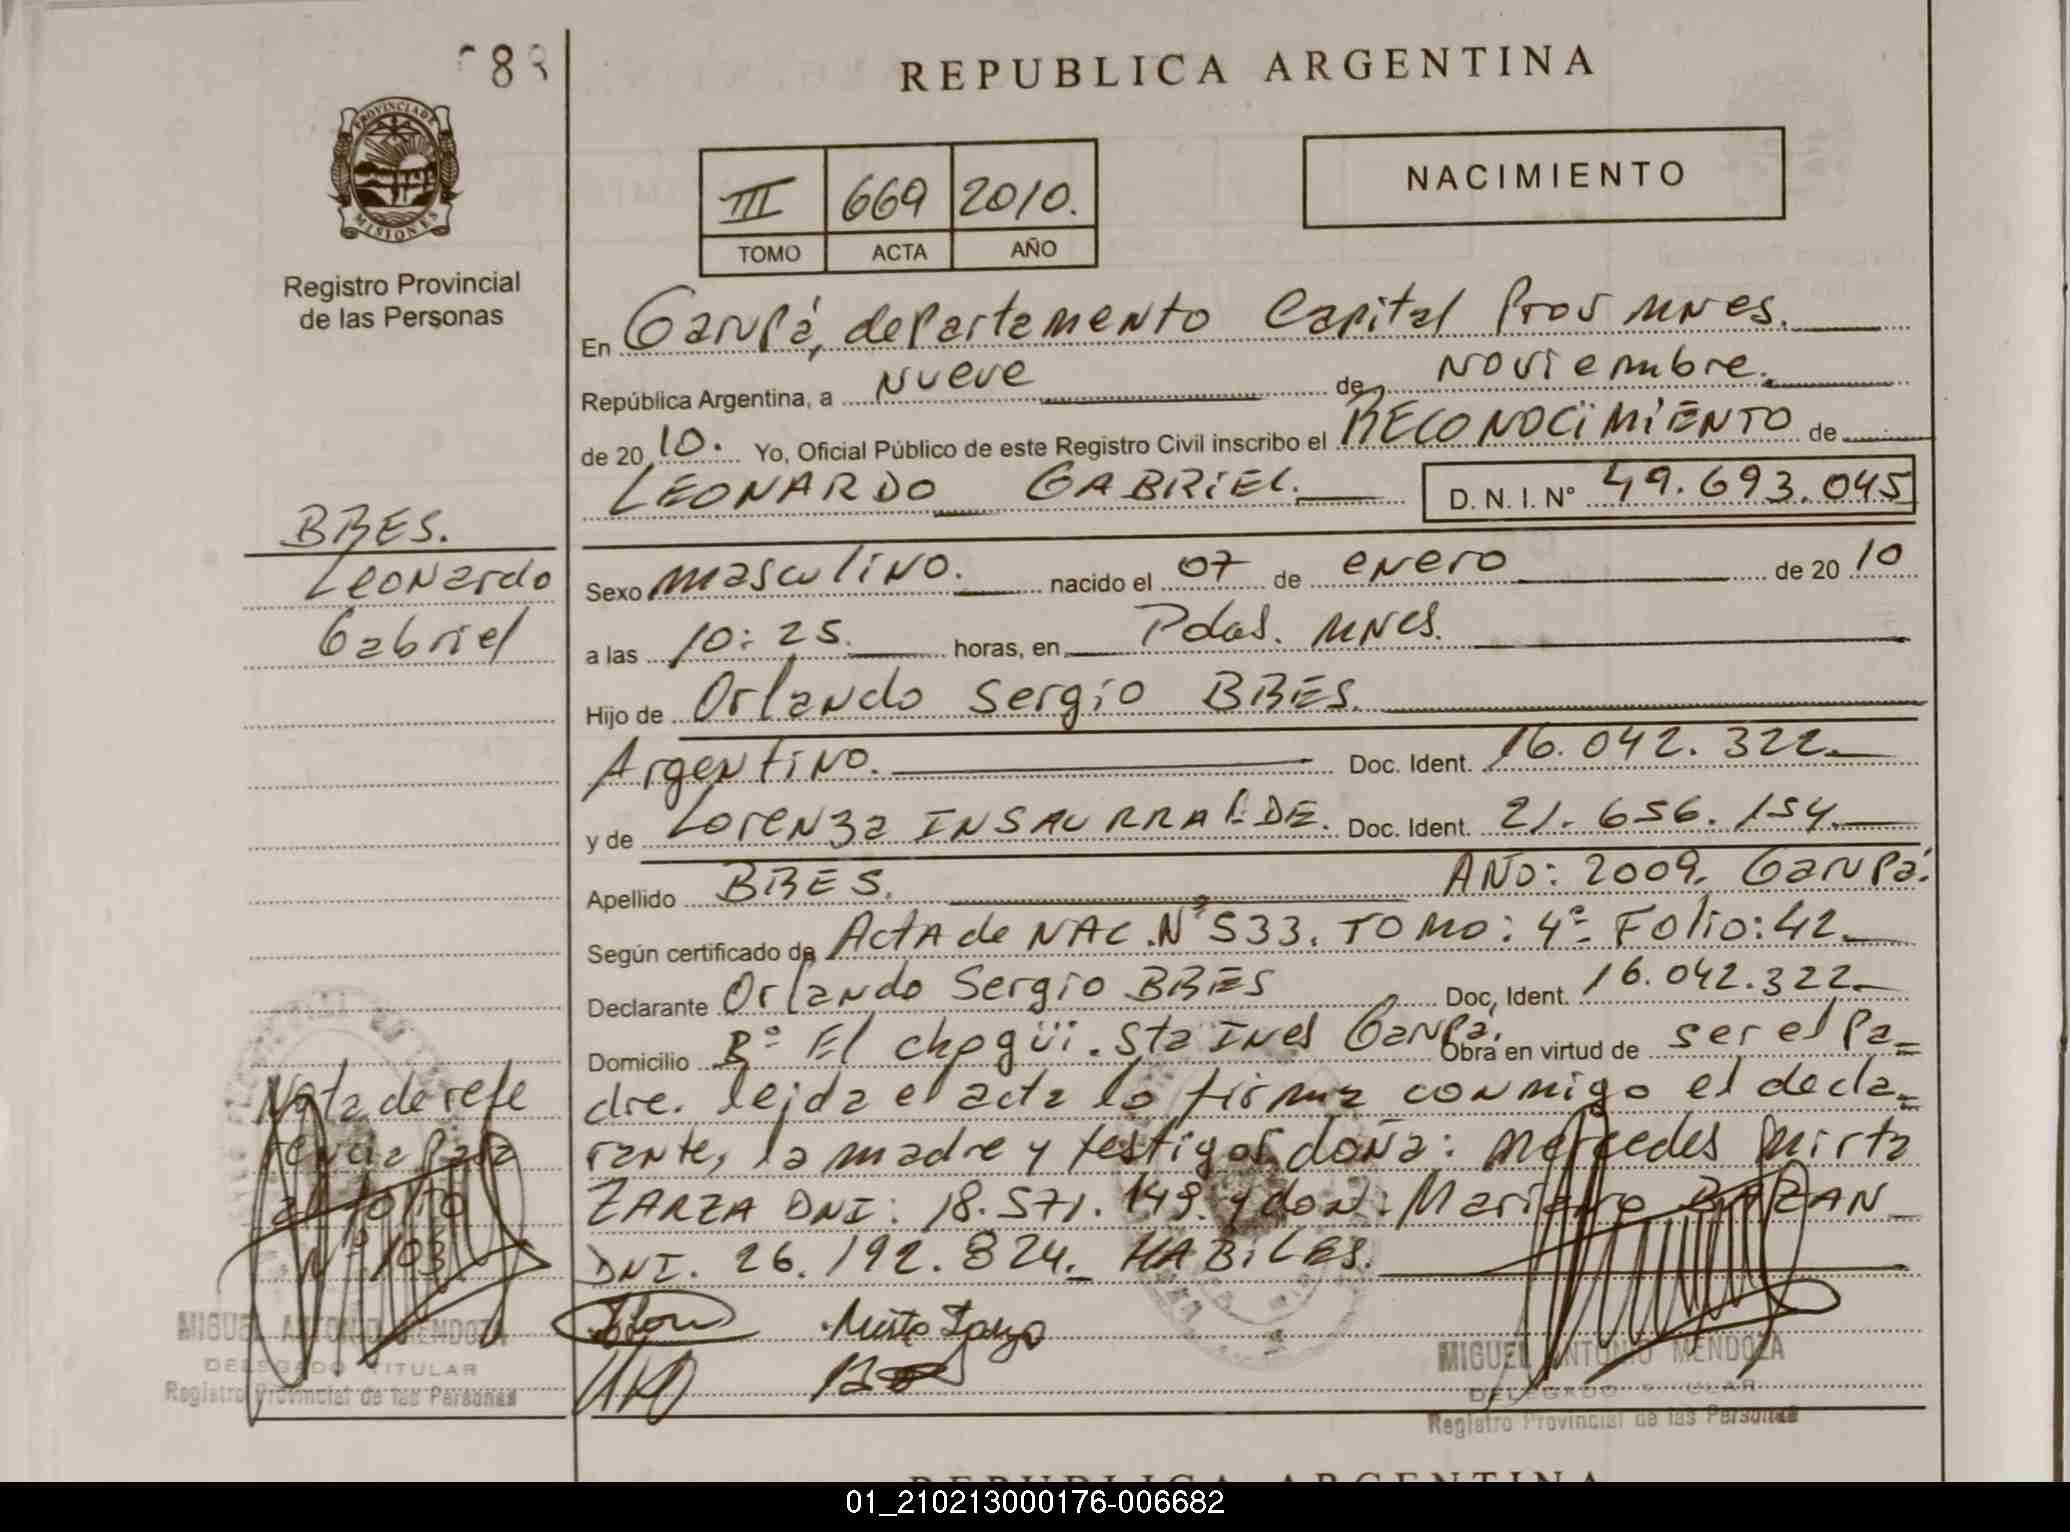 REPUBLICA ARGENTINA
PROVINCIA DE MISIONES
Registro Provincial
de las Personas
III 669 2010.
TOMO ACTA AÑO
NACIMIENTO
En Garupá, departamento Capital Pros MNES.
República Argentina, a nueve de noviembre.
de 20 10. Yo, Oficial Público de este Registro Civil inscribo el RECONOCIMIENTO de
LEONARDO GABRIEL. D. N. I. N° 49.693.045
BRES.
Leonardo
Gabriel
Sexo masculino. nacido el 07 de enero de 20 10
a las 10:25. horas, en Pdas. MNES.
Hijo de Orlando Sergio BRES.
Argentino. Doc. Ident. 16.042.322.
y de Lorenza INSAURRALDE. Doc. Ident. 21.656.154.
Apellido BRES. AÑO: 2009. Garupá.
Según certificado de Acta de NAC. N° 533. TOMO: 4º Folio: 42.
Declarante Orlando Sergio BRES Doc, Ident. 16.042.322.
Domicilio Bº El Sta Ines Garupá. Obra en virtud de ser el pa=
dre. leida el acta la firma conmigo el decla=
rante, la madre y testigos doña: Mercedes Mirta
ZARZA DNI: 18.571.149. y don: Mariano BAZAN
DNI. 26.192.824. HABILES.
Nota de refe
rencia pasa
al folio
Nº 103
Mirta Zarza
MIGUEL ANTONIO MENDOZA
DELEGADO TITULAR
Registro Provincial de las Personas
MIGUEL ANTONIO MENDOZA
DELEGADO TITULAR
Registro Provincial de las Personas
REPUBLICA ARGENTINA
01_210213000176-006682